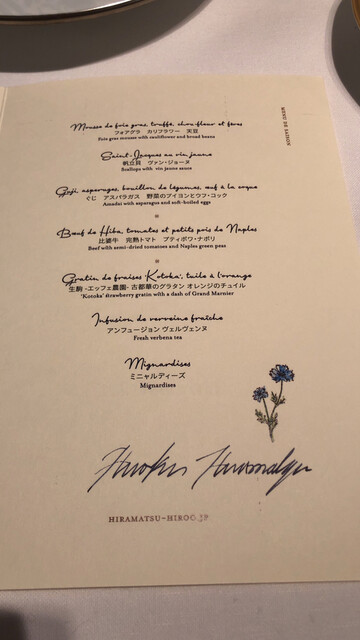 MENU DE SAISON
Mousse de foie gras, truffe, chou-fleur et fèves
フォアグラ カリフラワー 天豆
Foie gras mousse with cauliflower and broad beans
Saint-Jacques au vin jaune
帆立貝 ヴァン・ジョーヌ
Scallops with vin jaune sauce
Guji, asperges, bouillon de légumes, œuf à la coque
ぐじ アスパラガス 野菜のブイヨンとウフ・コック
Amadai with asparagus and soft-boiled eggs
Bœuf de Hiba, tomates et petits pois de Naples
比婆牛 完熟トマト プティポワ・ナポリ
Beef with semi-dried tomatoes and Naples green peas
Gratin de fraises 'Kotoka', tuile à l'orange
生駒 -エッフェ農園- 古都華のグラタン オレンジのチュイル
'Kotoka' strawberry gratin with a dash of Grand Marnier
Infusion de verveine fraîche
アンフュージョン ヴェルヴェンヌ
Fresh verbena tea
Mignardises
ミニャルディーズ
Mignardises
HIRAMATSU-HIROO.JP